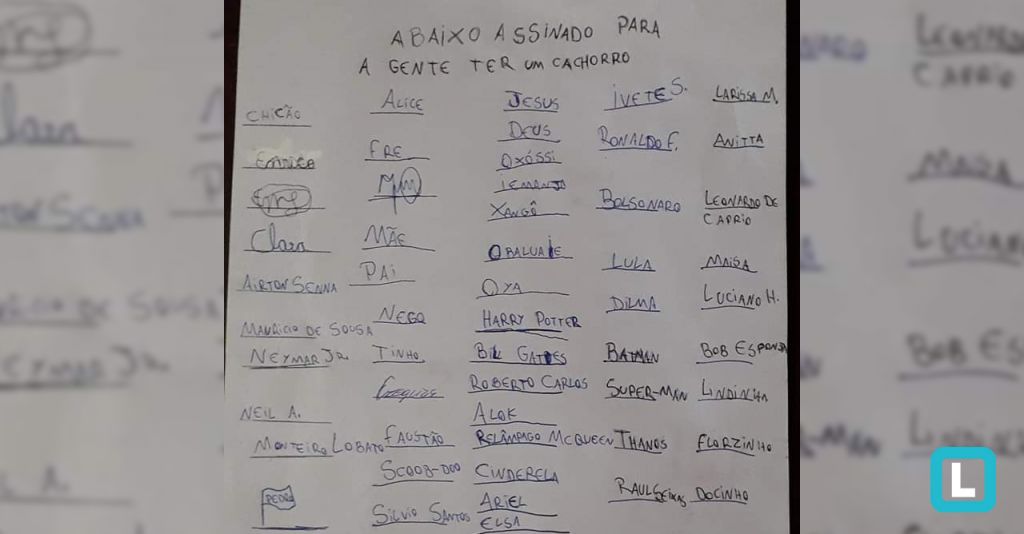 ABAIXO ASSINADO PARA
A GENTE TER UM CACHORRO
CHICÃO
Clara
AIRTON SENNA
MAURICIO DE SOUSA
NEYMAR JR.
NEIL A.
MONTEIRO LOBATO
PEDRO
ALICE
FRE
MÃE
PAI
NEGO
TINHO
FAUSTÃO
SCOOB-DOO
SILVIO SANTOS
JESUS
DEUS
OXÓSSI
IEMANJA
XANGÔ
OBALUAIE
OYA
HARRY POTTER
BILL GATES
ROBERTO CARLOS
ALOK
RELÂMPAGO MCQUEEN
CINDERELA
ARIEL
ELSA
IVETE S.
RONALDO F.
BOLSONARO
LULA
DILMA
BATMAN
SUPER-MAN
THANOS
RAUL SEIXAS
LARISSA M.
ANITTA
LEONARDO DE
CAPRIO
MAISA
LUCIANO H.
BOB ESPONJA
LINDINHA
FLORZINHA
DOCINHO
L